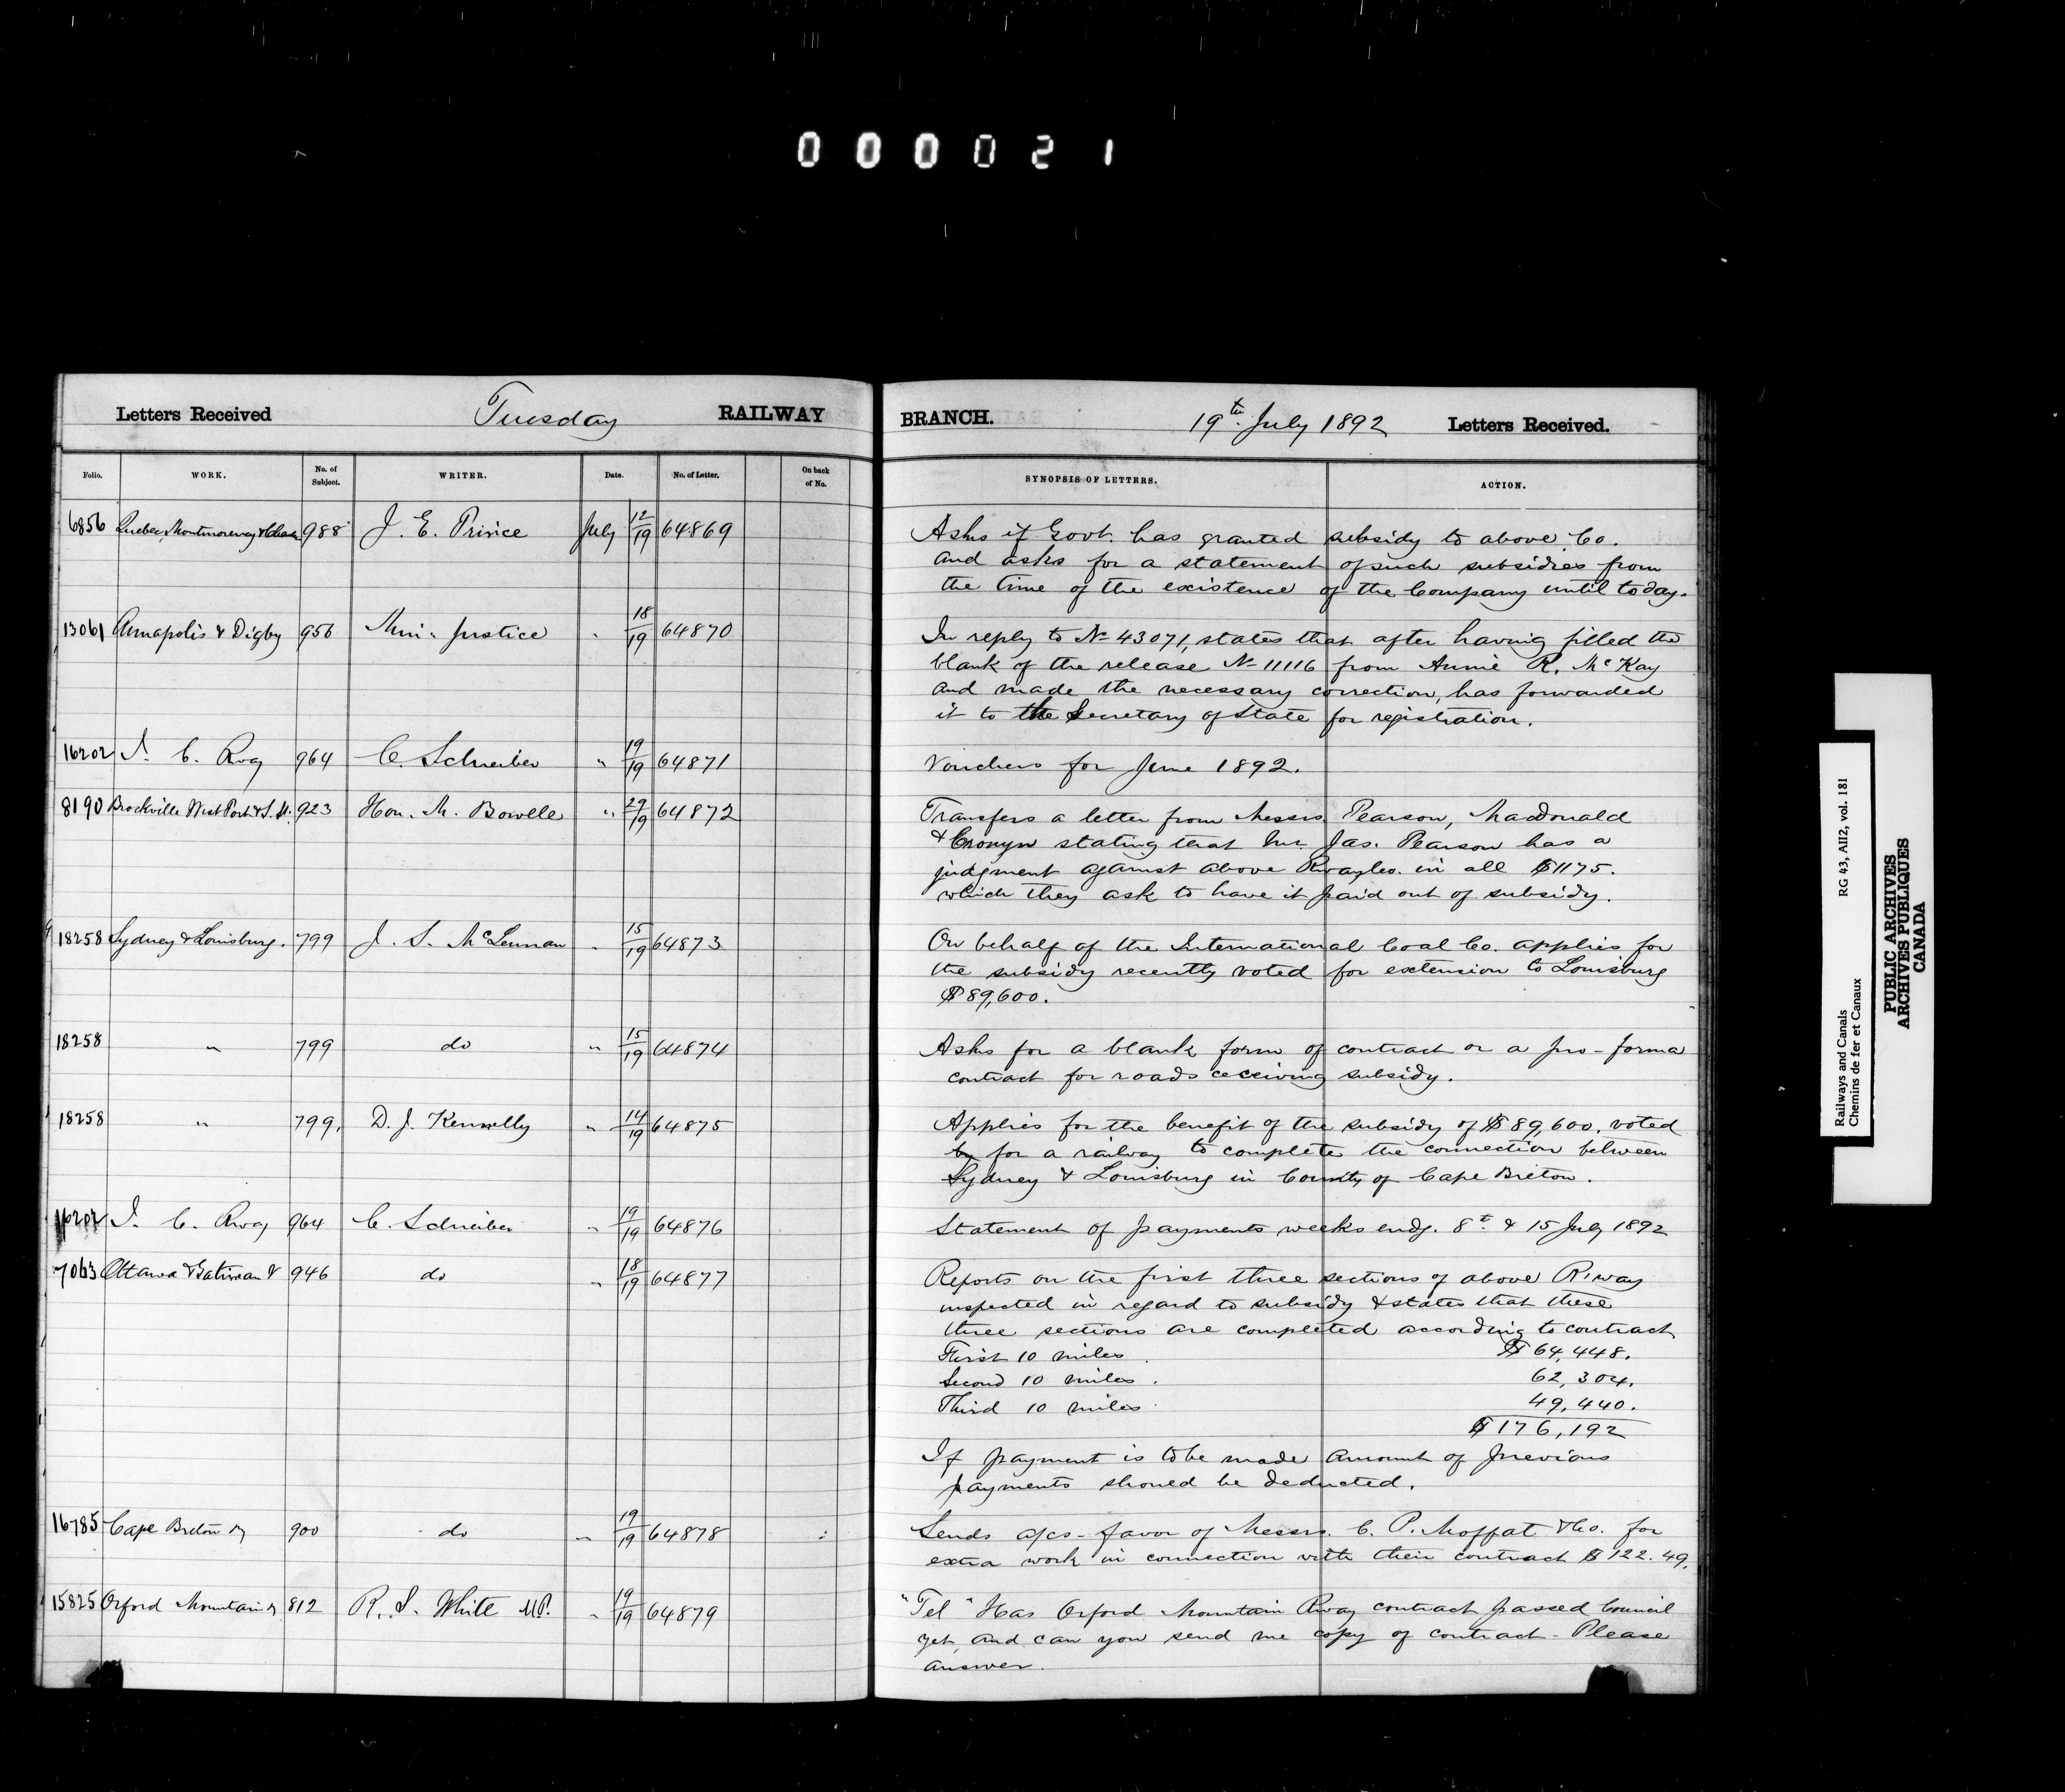 000021
Letters Received Tuesday RAILWAY BRANCH. 19th July 1892 Letters Received.
Folio. WORK. No. of Subject. WRITER. Date. No. of Letter. On back of No. SYNOPSIS OF LETTERS. ACTION.
6856 Quebec, Montmorency & Charlx 988 J. E. Prince July 12/19 64869 Asks if Govt. has granted subsidy to above Co.
and asks for a statement of such subsidies from
the time of the existence of the Company until today.
13061 Annapolis & Digby 956 Min. Justice " 18/19 64870 In reply to No 43071, states that after having filled the
blank of the release No 11116 from Annie R. McKay
and made the necessary correction, has forwarded
it to the Secretary of State for registration.
16202 I. C. Rway 964 C. Schreiber " 19/19 64871 Vouchers for June 1892.
8190 Brockville West Port & S. M. 923 Hon. M. Bowell " 29/19 64872 Transfers a letter from Messrs Pearson, Macdonald
& Cronyn stating that Mr. Jas. Pearson has a
judgment against above Rway Co. in all $1175.
which they ask to have it paid out of subsidy.
18258 Sydney & Louisburg. 799 J. S. McLennan " 15/19 64873 On behalf of the International Coal Co. applies for
the subsidy recently voted for extension to Louisburg
$89,600.
18258 " 799 do " 15/19 64874 Asks for a blank form of contract or a pro-forma
contract for roads receiving subsidy.
18258 " 799. D. J. Kennelly " 14/19 64875 Applies for the benefit of the subsidy of $89,600. voted
by for a railway to complete the connection between
Sydney & Louisburg in County of Cape Breton.
16202 I. C. Rway 964 C. Schreiber " 19/19 64876 Statement of payments weeks endg. 8t. & 15 July 1892
7063 Ottawa & Gatineau V 946 do " 18/19 64877 Reports on the first three sections of above R'way
inspected in regard to subsidy & states that these
three sections are completed according to contract
First 10 miles. $64,448.
Second 10 miles. 62,304.
Third 10 miles 49,440.
$176,192
If payment is to be made amount of previous
payments should be deducted.
16785 Cape Breton Ry 900 do " 19/19 64878 Sends a/cs - favor of Messrs. C. P. Moffat & Co. for
extra work in connection with their contract $122.49.
15825 Orford Mountain Ry 812 R. S. White MP. " 19/19 64879 "Tel" Has Orford Mountain Rway contract passed Council
yet, and can you send me copy of contract - Please
answer.
Railways and Canals RG 43, AII2, vol. 181
Chemins de fer et Canaux
PUBLIC ARCHIVES
ARCHIVES PUBLIQUES
CANADA